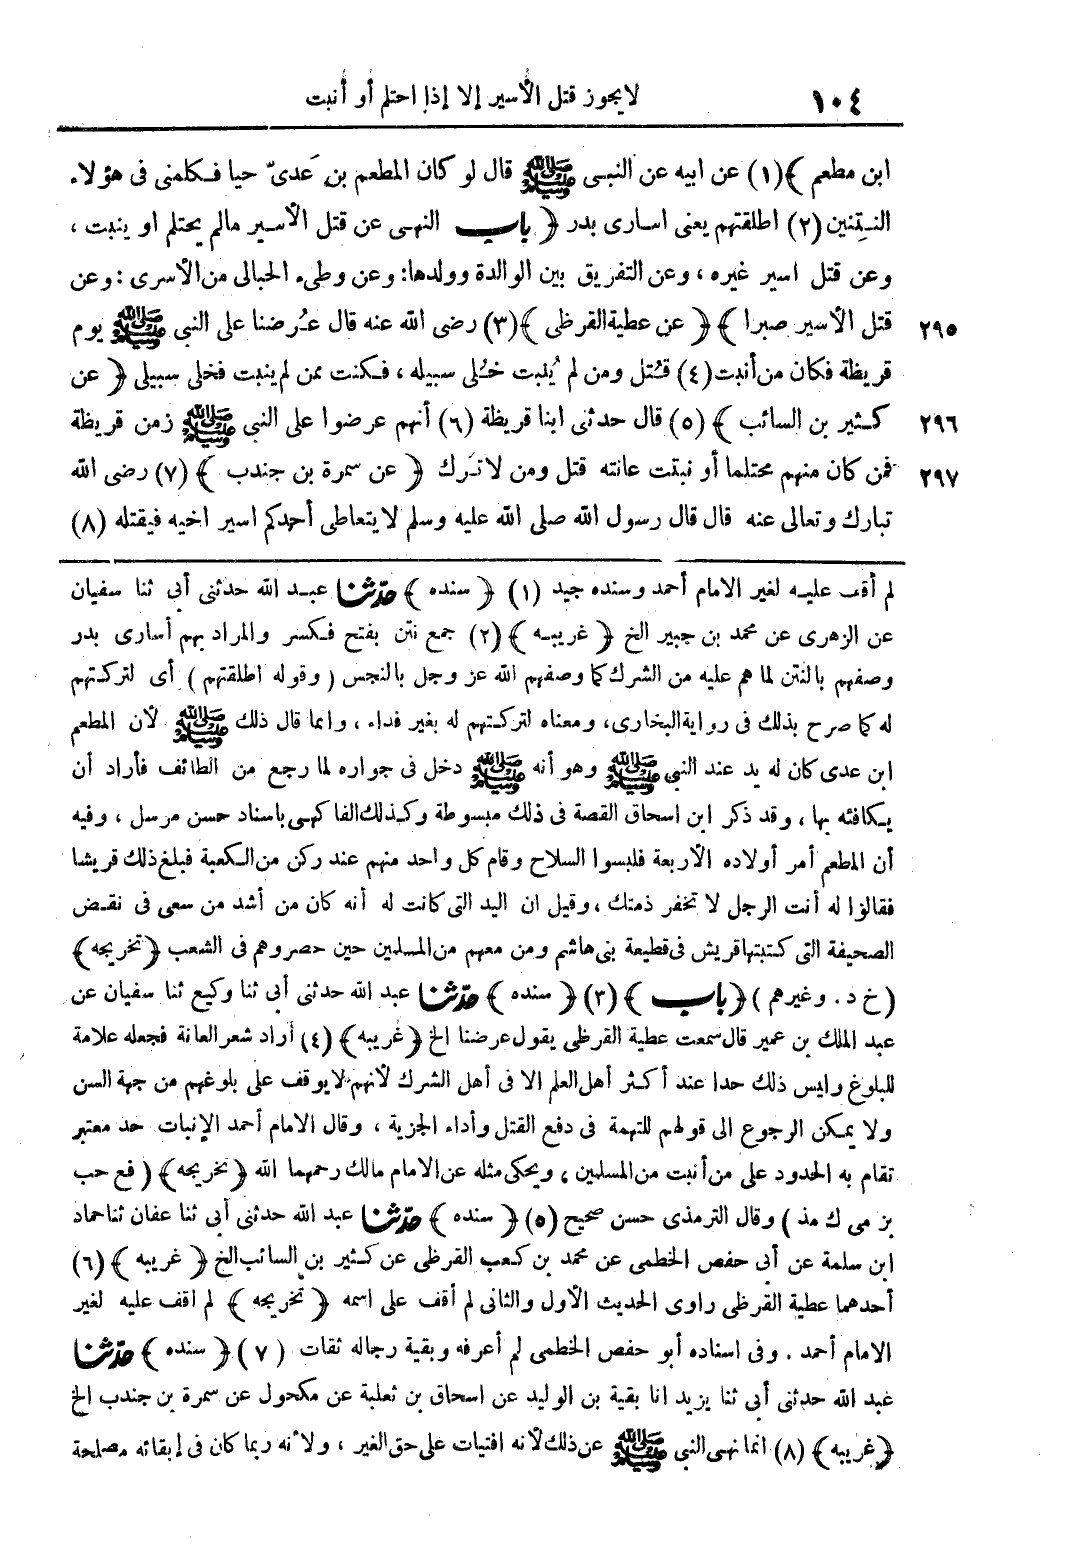 ١٠٤ لا يجوز قتل الأسير إلا إذا احتلم أو أنبت
ابن مطعم ﴾(١) عن ابيه عن النبى ﷺ قال لو كان المطعم بن عدىّ حيا فكلمنى فى هؤلاء
النتنين (٢) اطلقتهم يعنى اسارى بدر ﴿ باب النهى عن قتل الأسير مالم يحتلم او ينبت ،
وعن قتل اسير غيره ، وعن التفريق بين الوالدة وولدها: وعن وطىء الحبالى من الأسرى : وعن
٢٩٥ قتل الأسير صبرا ﴾ ﴿ عن عطية القرظى ﴾(٣) رضى الله عنه قال عُرضنا على النبى ﷺ يوم
قريظة فكان من أنبت (٤) قتل ومن لم يُنبت خُلى سبيله ، فكنت ممن لم ينبت فخلى سبيلى ﴿ عن
٢٩٦ كثير بن السائب ﴾ (٥) قال حدثنى ابنا قريظة (٦) أنهم عرضوا على النبى ﷺ زمن قريظة
٢٩٧ فمن كان منهم محتلما أو نبتت عانته قتل ومن لا تُرك ﴿ عن سمرة بن جندب ﴾ (٧) رضى الله
تبارك وتعالى عنه قال قال رسول الله صلى الله عليه وسلم لا يتعاطى أحدكم اسير اخيه فيقتله (٨)
لم أقف عليه لغير الامام أحمد وسنده جيد (١) ﴿ سنده ﴾ حدّثنا عبد الله حدثنى أبى ثنا سفيان
عن الزهرى عن محمد بن جبير الخ ﴿ غريبه ﴾ (٢) جمع نتن بفتح فكسر والمراد بهم أسارى بدر
وصفهم بالنتن لما هم عليه من الشرك كما وصفهم الله عز وجل بالنجس ( وقوله اطلقتهم ) أى لتركتهم
له كما صرح بذلك فى رواية البخارى، ومعناه لتركتهم له بغير فداء ، وانما قال ذلك ﷺ لأن المطعم
ابن عدى كان له يد عند النبى ﷺ وهو أنه ﷺ دخل فى جواره لما رجع من الطائف فأراد أن
يكافئه بها ، وقد ذكر ابن اسحاق القصة فى ذلك مبسوطة وكذلك الفاكهى باسناد حسن مرسل ، وفيه
أن المطعم أمر أولاده الأربعة فلبسوا السلاح وقام كل واحد منهم عند ركن من الكعبة فبلغ ذلك قريشا
فقالوا له أنت الرجل لا تخفر ذمتك ، وقيل ان اليد التى كانت له أنه كان من أشد من سعى فى نقض
الصحيفة التى كتبتها قريش فى قطيعة بنى هاشم ومن معهم من المسلمين حين حصروهم فى الشعب ﴿ تخريجه ﴾
( خ د . وغيرهم ) ﴿ باب ﴾ (٣) ﴿ سنده ﴾ حدّثنا عبد الله حدثنى أبى ثنا وكيع ثنا سفيان عن
عبد الملك بن عمير قال سمعت عطية القرظى يقول عرضنا الخ ﴿ غريبه ﴾ (٤) أراد شعر العانة فجعله علامة
للبلوغ وليس ذلك حدا عند أكثر أهل العلم الا فى أهل الشرك لأنهم لا يوقف على بلوغهم من جهة السن
ولا يمكن الرجوع الى قولهم للتهمة فى دفع القتل وأداء الجزية ، وقال الامام أحمد الإنبات حد معتبر
تقام به الحدود على من أنبت من المسلمين ، ويحكى مثله عن الامام مالك رحمهما الله ﴿ تخريجه ﴾ ( فع حب
بز مى ك مذ ) وقال الترمذى حسن صحيح (٥) ﴿ سنده ﴾ حدّثنا عبد الله حدثنى أبى ثنا عفان ثنا حماد
ابن سلمة عن أبى حفص الخطمى عن محمد بن كعب القرظى عن كثير بن السائب الخ ﴿ غريبه ﴾ (٦)
أحدهما عطية القرظى راوى الحديث الأول والثانى لم أقف على اسمه ﴿ تخريجه ﴾ لم اقف عليه لغير
الامام أحمد . وفى اسناده أبو حفص الخطمى لم أعرفه وبقية رجاله ثقات (٧) ﴿ سنده ﴾ حدّثنا
عبد الله حدثنى أبى ثنا يزيد انا بقية بن الوليد عن اسحاق بن ثعلبة عن مكحول عن سمرة بن جندب الخ
﴿ غريبه ﴾ (٨) انما نهى النبى ﷺ عن ذلك لأنه افتيات على حق الغير ، ولأنه ربما كان فى إبقائه مصلحة